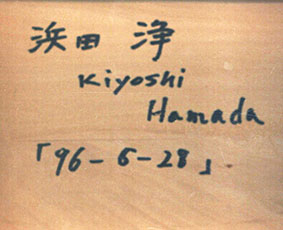 浜田 浄
Kiyoshi
Hamada
「96-6-28」